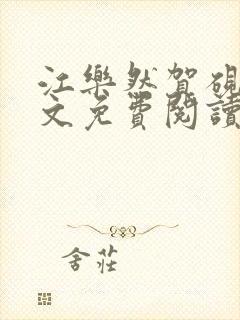 江樂然賀硯
文免費閱讀
舍莊